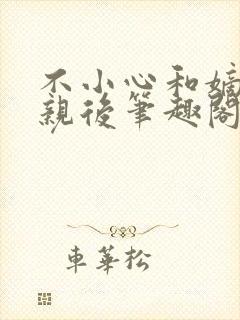 不小心和嫡
親後筆趣閣
車華松